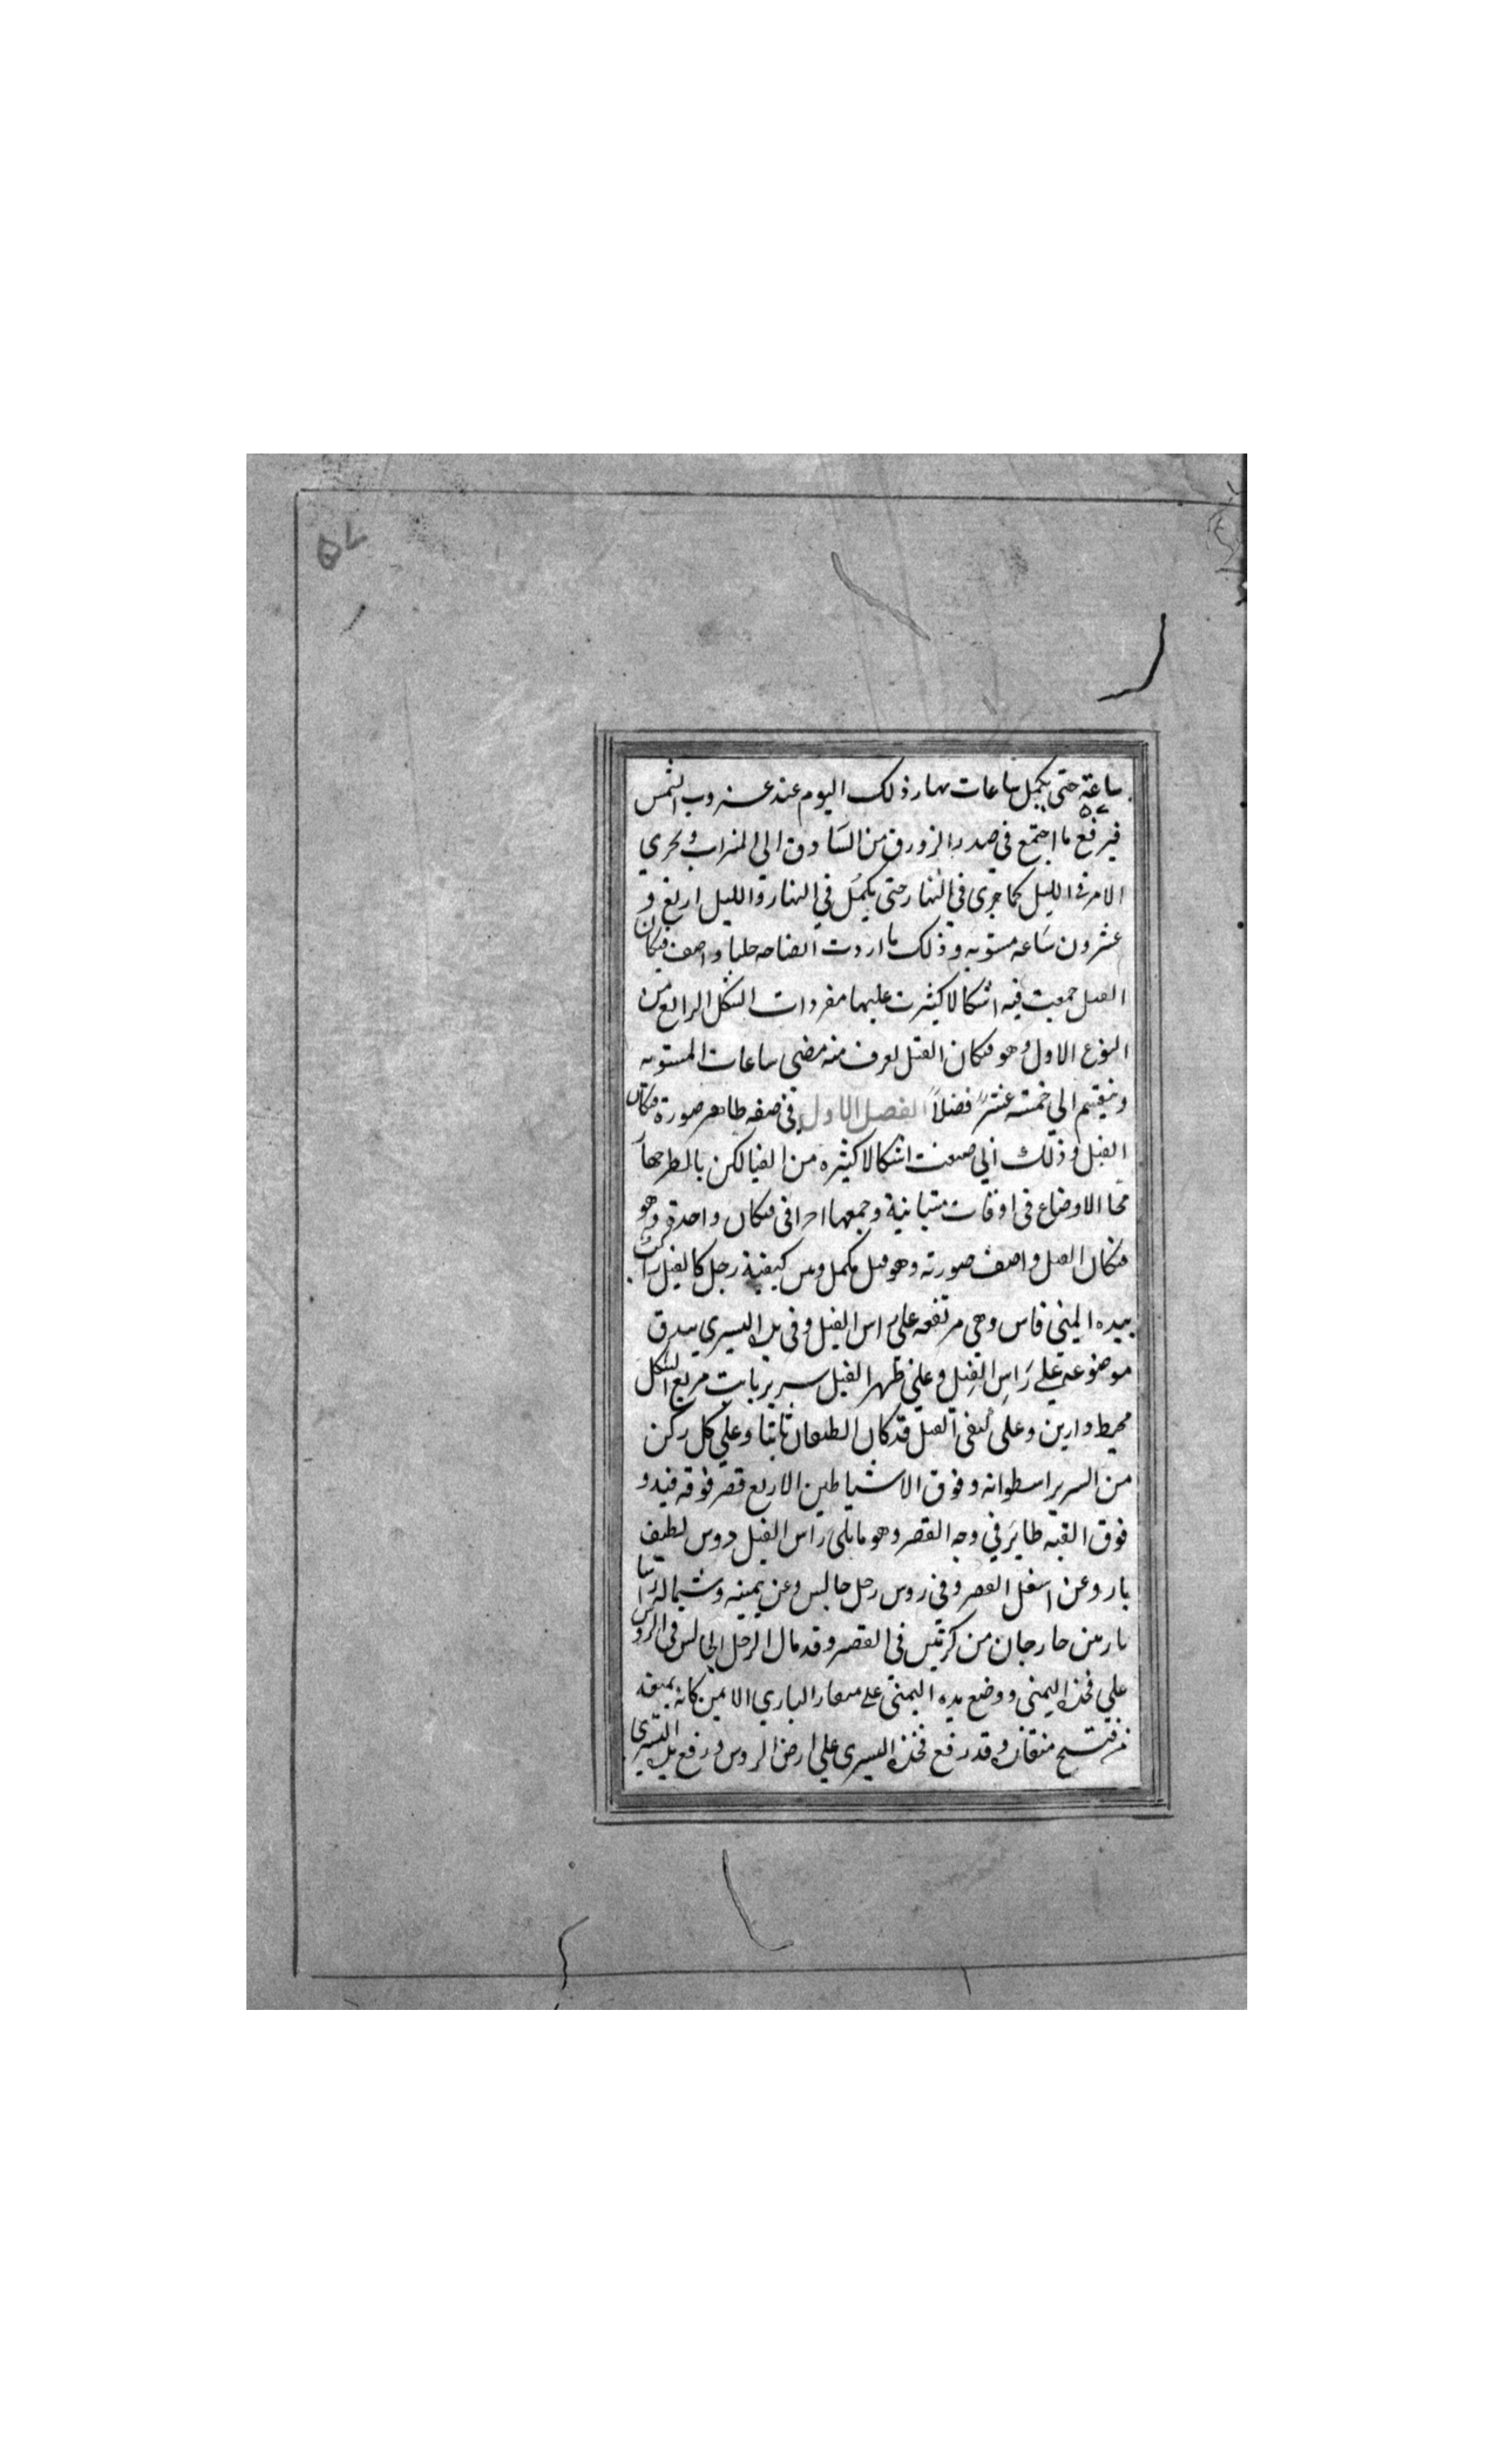 ٥٧
ساعة حتى يكمل ساعات نهار ذلك اليوم عند غروب الشمس
فيرفع ما اجتمع في صدر الزورق من البنادق الى الميزاب ويجري
الامر في الليل كما جرى في النهار حتى يكمل في النهار والليل اربع و
عشرون ساعه مستويه وذلك ما اردت ايضاحه جليا واصف فنكان
الفيل جمعت فيه اشكالا كثيرت عليها مفردات الشكل الرابع من
النوع الاول وهو فنكان الفيل يعرف منه مضى ساعات المستويه
وينقسم الي خمسة عشر فصلاً الفصل الاول في صفه ظاهر صورة فنكان
الفيل وذلك اني صنعت اشكالا كثيره من الفيا لكن بالطرجها
الاوضاع في اوقات متباينة وجمعها في فنكان واحدة وهو
فنكان الفيل واصف صورته وهو فيل مكمل وبين كيفية رجل كالفيل راكب
بيده اليمنى فاس وهي مرتفعه على راس الفيل وفى يده اليسرى بيدق
موضوعة على راس الفيل وعلى ظهر الفيل سرير بابت مربع الشكل
محيط دارين وعلى كتفى الفيل قد كان الطبعان ثابتا وعلى كل ركن
من السرير اسطوانه وفوق الاشياطين الاربع قصر فوقه فيد و
فوق القبه طاير في وجه القصر وهو ما يلى راس الفيل دوس لطيف
بار وعن اسفل القصر وفى روس رجل جالس وعن يمينه وشماله راسا
بازين خارجان من كرتين في القصر وقد مال الرجل الجالس في الروس
على فخذه اليمنى ووضع يده اليمنى على منقار البازي الايمن كانه يمنعه
من فتح منقاره وقد رفع فخذه اليسرى على ارض الروس ورفع يده اليسرى